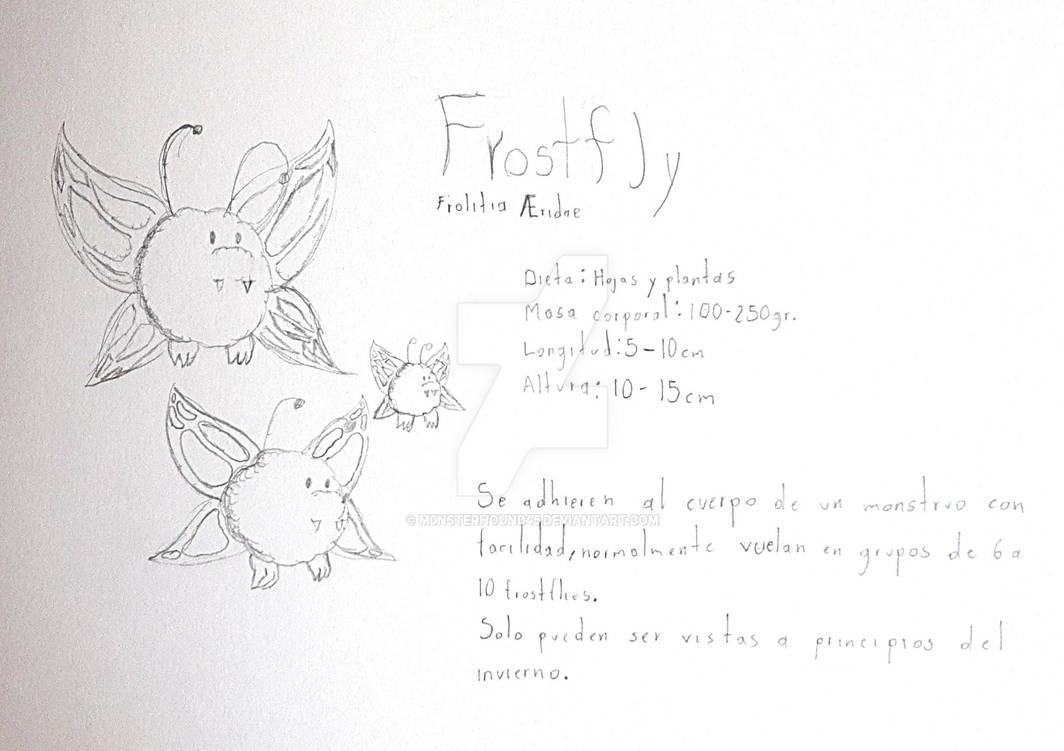 Frostfly
Frolitia Æridae
Dieta: Hojas y plantas
Masa corporal: 100-250gr.
Longitud: 5-10cm
Altura: 10-15cm
Se adhieren al cuerpo de un monstruo con
facilidad, normalmente vuelan en grupos de 6 a
10 frostflies.
Solo pueden ser vistas a principios del
invierno.
© MONSTERHOUND45.DEVIANTART.COM